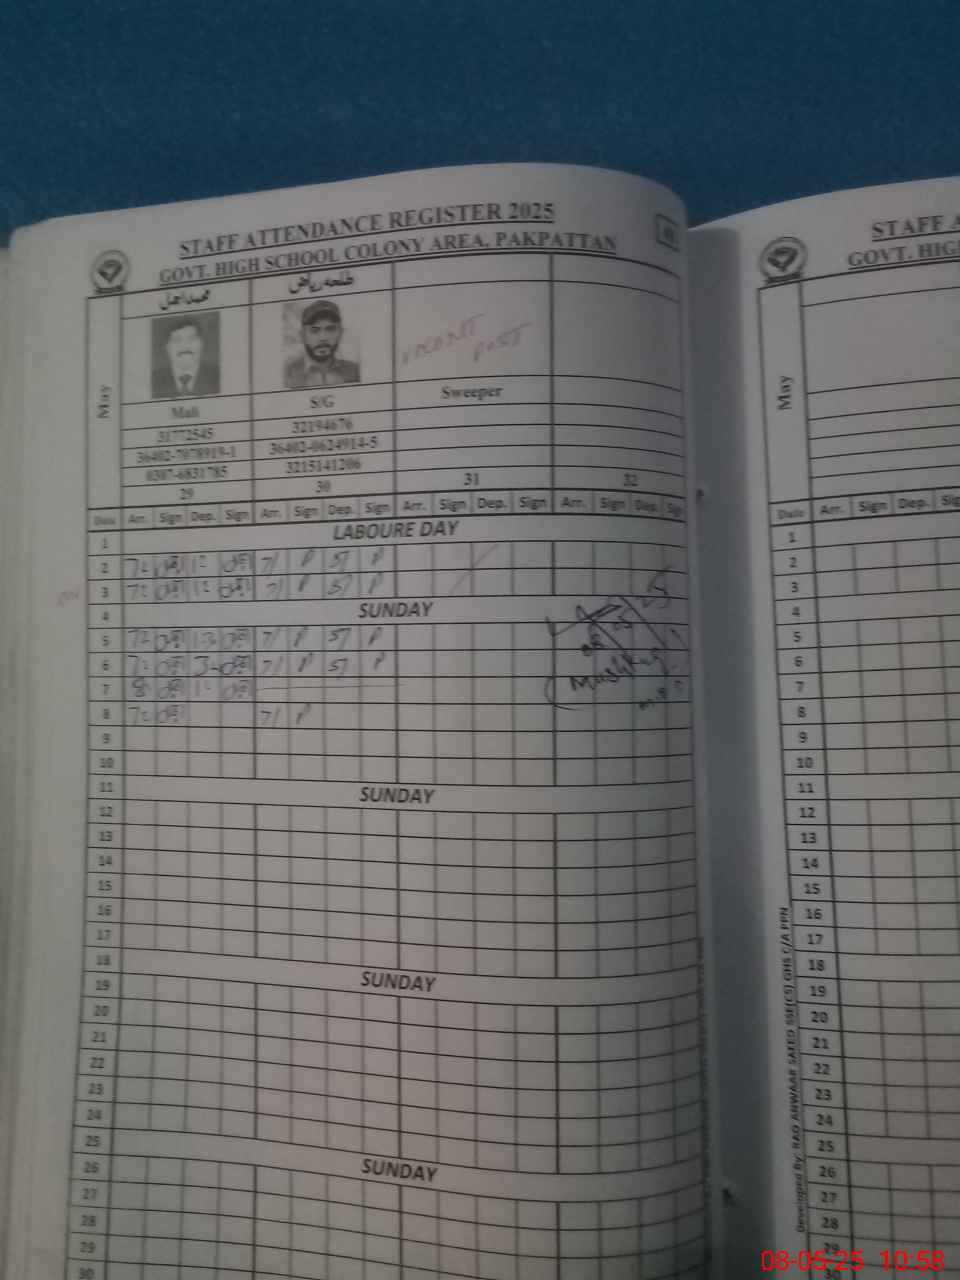 STAFF ATTENDANCE REGISTER 2025
GOVT. HIGH SCHOOL COLONY AREA, PAKPATTAN
محمد اجمل طلحہ ریاض
May
VACANT POST
Mali S/G Sweeper
31772545 32194676
36402-7078919-1 36402-0624914-5
0307-6831785 3215141206
29 30 31 32
Date Arr. Sign Dep. Sign Arr. Sign Dep. Sign Arr. Sign Dep. Sign Arr. Sign Dep. Sign
1 LABOURE DAY
2 71 P 51 P
3 71 P 51 P
4 SUNDAY
5 71 P 51 P
6 71 P 51 P
7
8 71 P
9
10
11 SUNDAY
12
13
14
15
16
17
18 SUNDAY
19
20
21
22
23
24
25 SUNDAY
26
27
28
29
30
STAFF A
GOVT. HIG
May
Date Arr. Sign Dep.
1
2
3
4
5
6
7
8
9
10
11
12
13
14
15
16
17
18
19
20
21
22
23
24
25
26
27
28
29
30
Developed By: RAO ANWAAR SAEED SST(CS) GHS C/A PPN
08-05-25 10:58